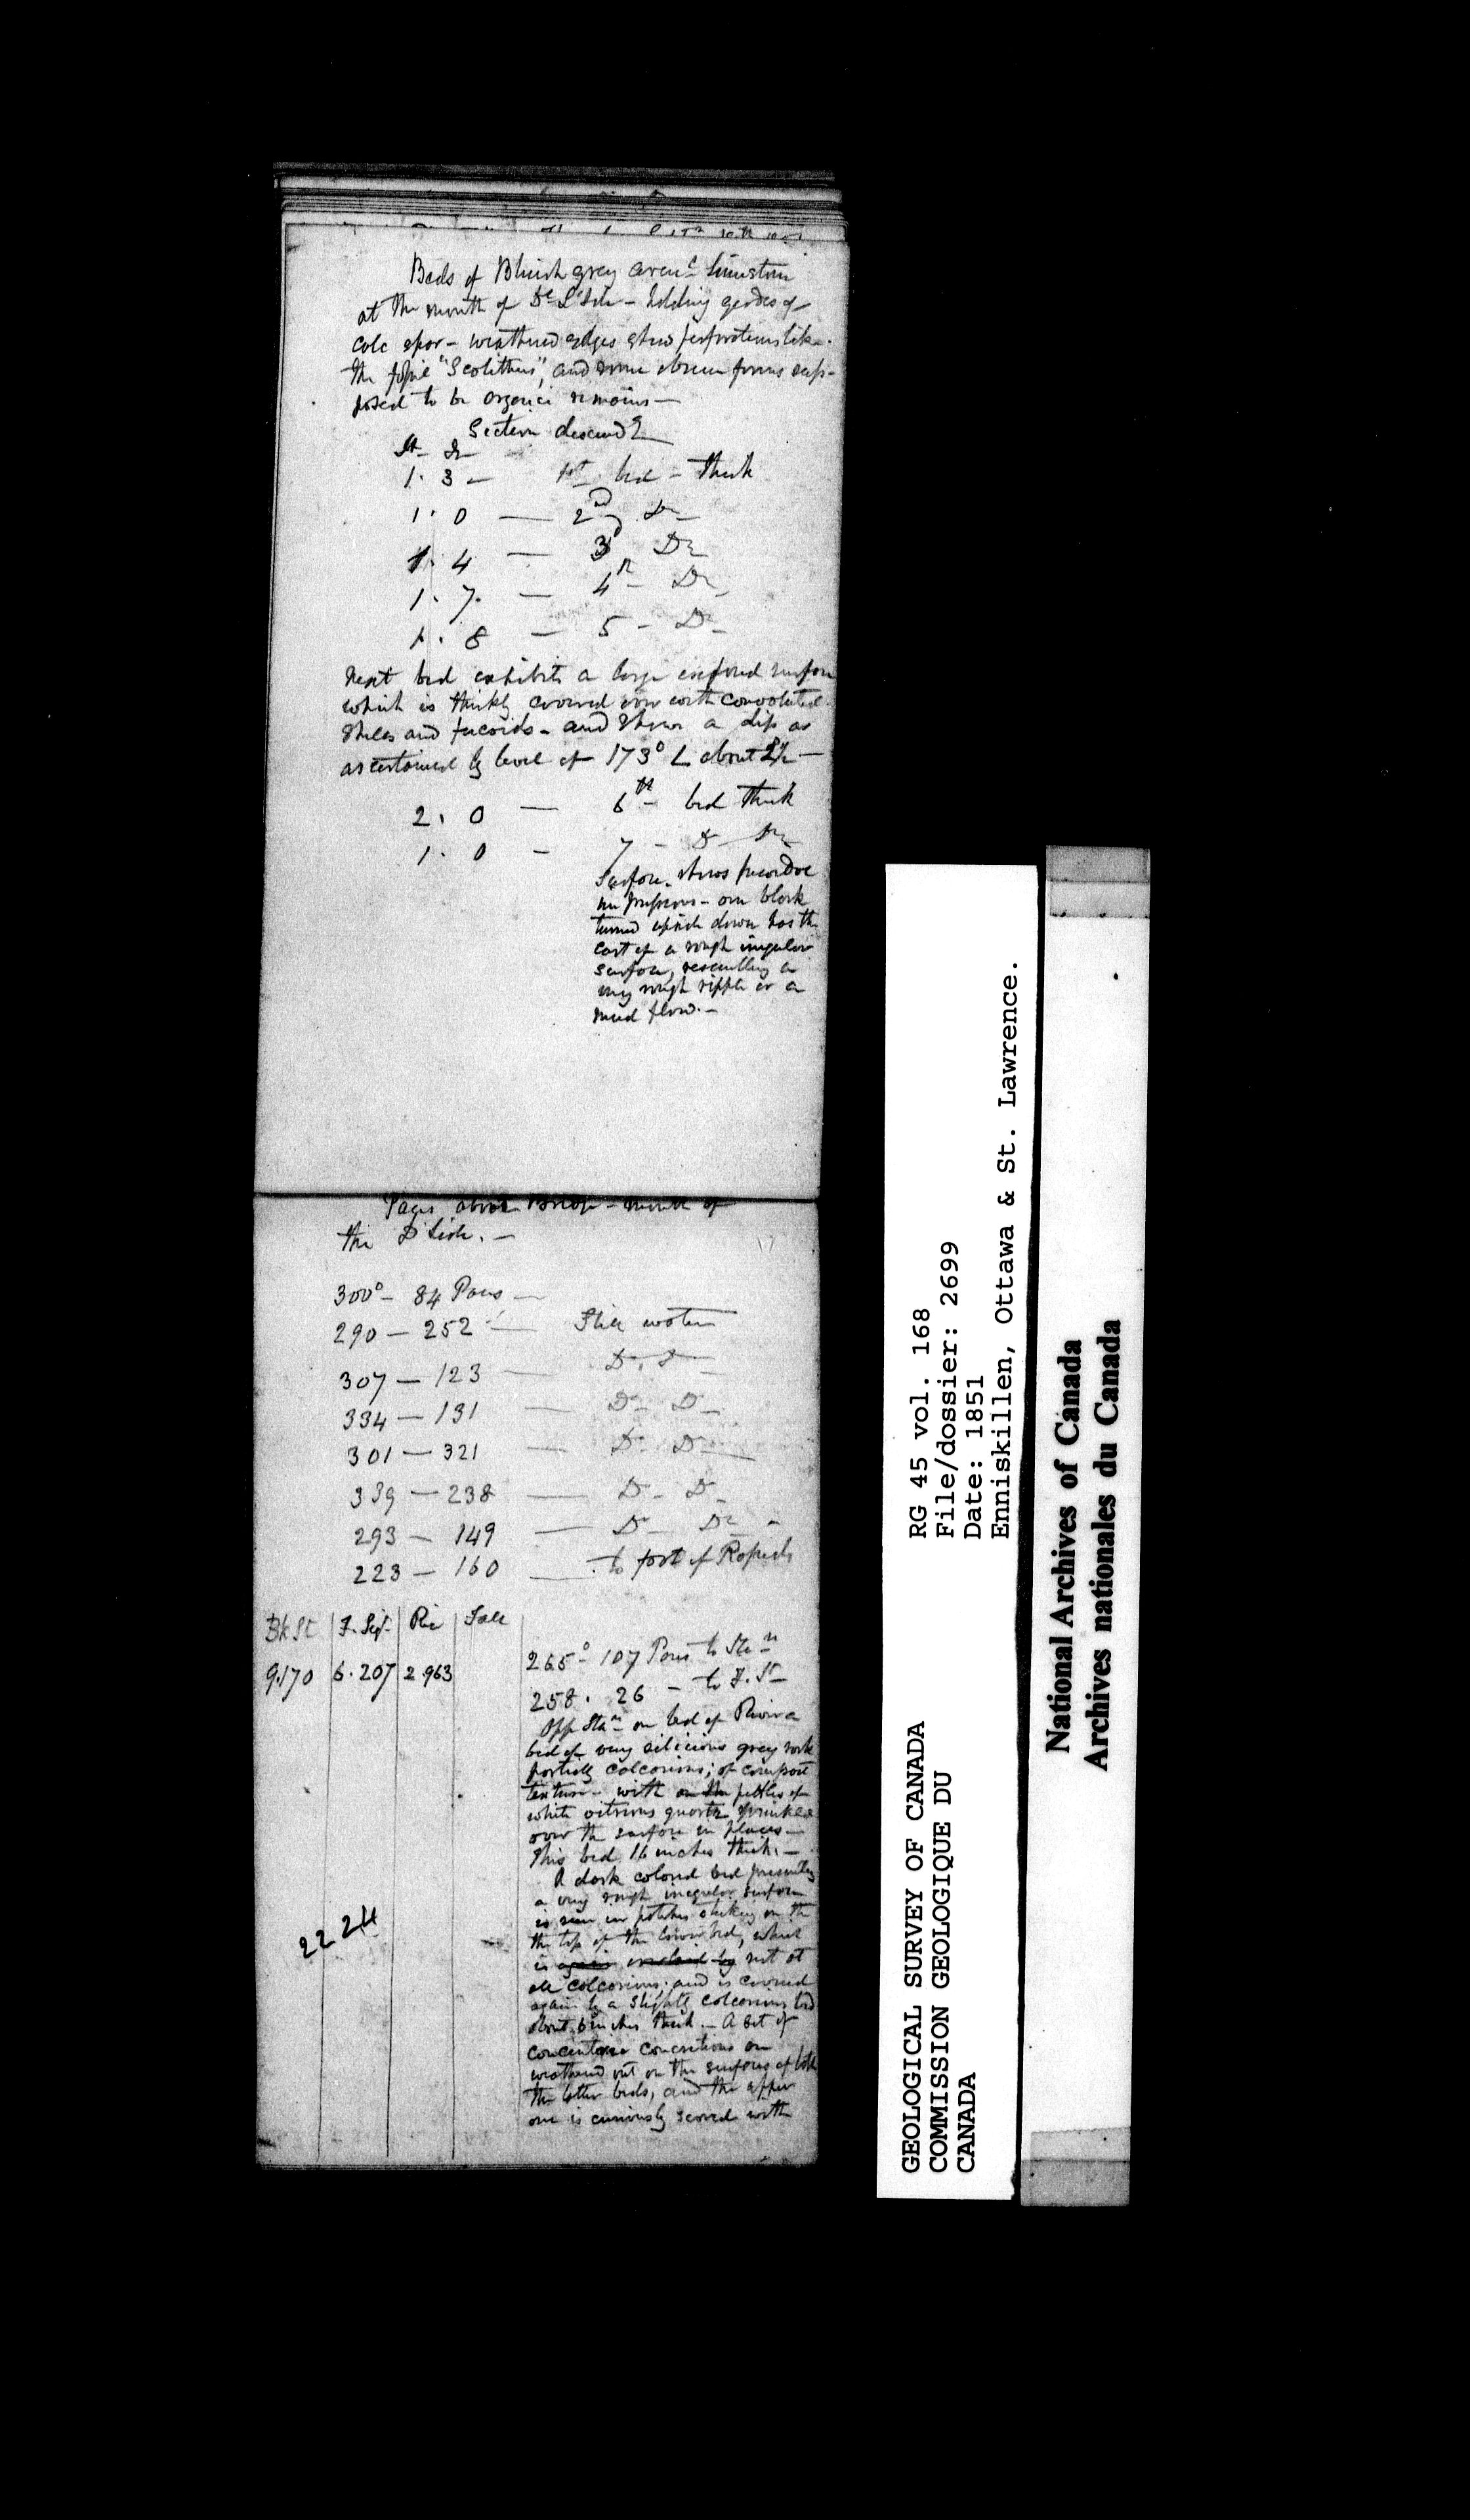 Beds of Bluish grey aren<sup>c</sup> limestone
at the mouth of De L'Isle - holding geodes of
calc spar - weathered edges show perforations like
the fossil "Scolithus", and some obscure forms sup-
posed to be organic remains —
Section descend<sup>g</sup>
ft In
1. 3 — 1st bed - thick
1. 0 — 2nd Do
1. 4 — 3d Do
1. 7. — 4th Do
1. 8 — 5 - Do
Next bed exhibits a large exposed surface
which is thickly covered over with convoluted
shells and fucoids - and shews a dip as
ascertained by level of 173° L about
2. 0 — 6th bed thick
1. 0 - 7 - Do Do
Surface shews fucoidal
impressions - one block
turned upside down has the
cast of a rough irregular
surface, resembling a
very rough ripple or a
mud flow. —
Paces above Bridge - mouth of
the D'Lisle. —
300° - 84 Paces —
290 — 252 — Still water
307 — 123 — Do. Do
334 — 131 — Do Do
301 — 321 — Do Do
339 — 238 — Do Do
293 — 149 — Do Do
223 — 160 — to foot of Rapids
Bk St F. Sigt. Rise Fall
9.170 6.207 2.963
265° 107 Paces to Stn
258. 26 - to F. St
Opp Stan on bed of River a
bed of very silicious grey rock
partially calcarious; of compact
texture - with on the pebbles of
white vitrious quartz sprinkled
over the surface in places —
This bed 16 inches thick. —
A dark colored bed presenting
a very rough irregular surface
is seen in patches sticking on the
the top of the lower bed, which
is again overlaid by not at
all calcarious; and is covered
again by a slightly calcarious bed
about 6 inches thick. — A set of
concentric concretions are
weathered out on the surfaces of both
the latter beds, and the upper
one is curiously scored with
2224
RG 45 vol. 168
File/dossier: 2699
Date: 1851
Enniskillen, Ottawa & St. Lawrence.
GEOLOGICAL SURVEY OF CANADA
COMMISSION GEOLOGIQUE DU
CANADA
National Archives of Canada
Archives nationales du Canada